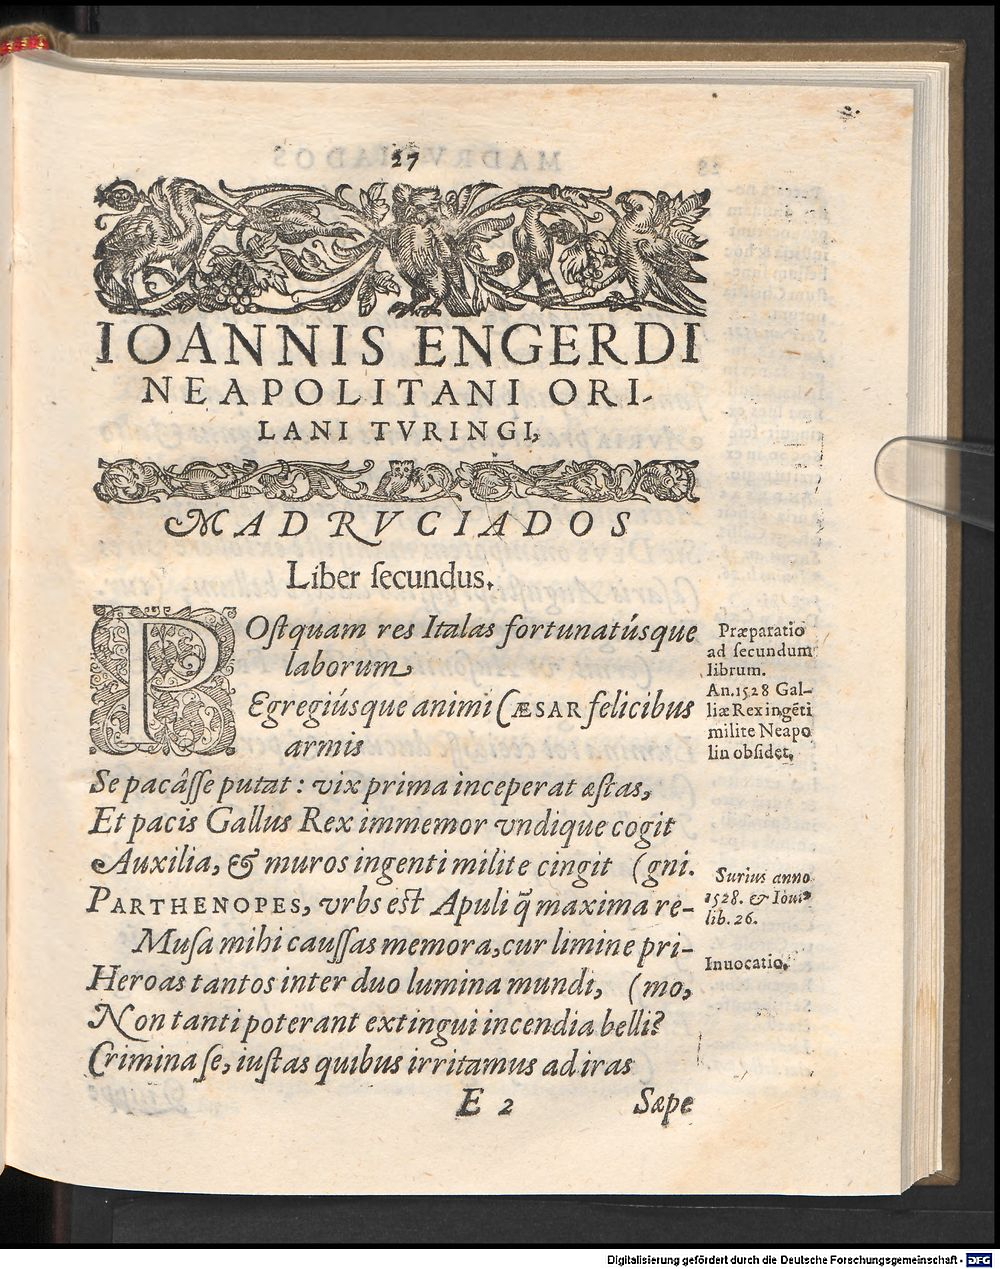 27
IOANNIS ENGERDI
NEAPOLITANI ORI-
LANI TVRINGI,
MADRVCIADOS
Liber ſecundus.
POſtquam res Italas fortunatúsque
laborum
Egregiúsque animi CÆSAR felicibus
armis
Se pacâſſe putat: vix prima inceperat æſtas,
Et pacis Gallus Rex immemor vndique cogit
Auxilia, & muros ingenti milite cingit (gni.
PARTHENOPES, vrbs est Apuli q̃ maxima re-
Muſa mihi cauſſas memora, cur limine pri-
Heroas tantos inter duo lumina mundi, (mo,
Non tanti poterant extingui incendia belli?
Crimina ſe, iuſtas quibus irritamus ad iras
E 2 Sæpe
Præparatio
ad ſecundum
librum.
An. 1528 Gal-
liæ Rex ingẽti
milite Neapo
lin obſidet.
Surius anno
1528. & Ioui⁹
lib. 26.
Inuocatio.
Digitalisierung gefördert durch die Deutsche Forschungsgemeinschaft - DFG